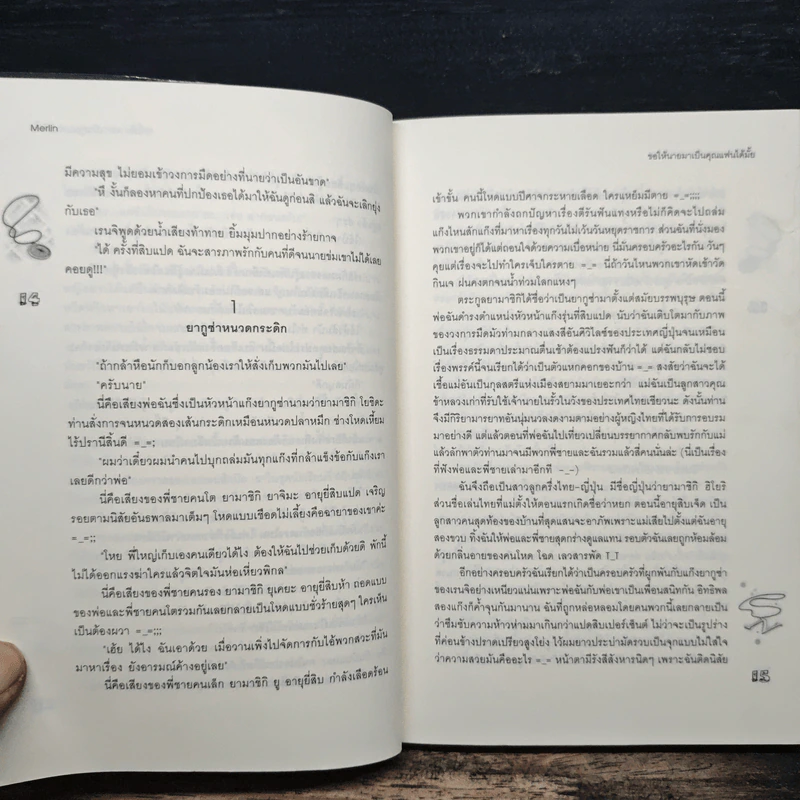 Merlin
มีความสุข ไม่ยอมเข้าวงการมืดอย่างที่นายว่าเป็นอันขาด"
"หึ งั้นก็ลองหาคนที่ปกป้องเธอได้มาให้ฉันดูก่อนสิ แล้วฉันจะเลิกยุ่ง
กับเธอ"
เรนจิพูดด้วยน้ำเสียงท้าทาย ยิ้มมุมปากอย่างร้ายกาจ
"ได้ ครั้งที่สิบแปด ฉันจะสารภาพรักกับคนที่ดีจนนายข่มเขาไม่ได้เลย
คอยดู!!!"
14
1
ยากูซ่าหนวดกระดิก
"ถ้ากล้าหือนักก็บอกลูกน้องเราให้สั่งเก็บพวกมันไปเลย"
"ครับนาย"
นี่คือเสียงพ่อฉันซึ่งเป็นหัวหน้าแก๊งยากูซ่านามว่ายามาชิกิ โยชิดะ
ท่านสั่งการจนหนวดสองเส้นกระดิกเหมือนหนวดปลาหมึก ช่างโหดเหี้ยม
ไร้ปรานีสิ้นดี =_=;
"ผมว่าเดี๋ยวผมนำคนไปบุกถล่มมันทุกแก๊งที่กล้าแข็งข้อกับแก๊งเรา
เลยดีกว่าพ่อ"
นี่คือเสียงของพี่ชายคนโต ยามาชิกิ ยาจิมะ อายุยี่สิบแปด เจริญ
รอยตามนิสัยอันธพาลมาเต็มๆ โหดแบบเชือดไม่เลี้ยงคือฉายาของเขาค่ะ
=_=;;
"โหย พี่ใหญ่เก็บเองคนเดียวได้ไง ต้องให้ฉันไปช่วยเก็บด้วยดิ พักนี้
ไม่ได้ออกแรงฆ่าใครแล้วจิตใจมันห่อเหี่ยวพิกล"
นี่คือเสียงของพี่ชายคนรอง ยามาชิกิ ยุเคยะ อายุยี่สิบห้า ถอดแบบ
ของพ่อและพี่ชายคนโตรวมกันเลยกลายเป็นโหดแบบชั่วร้ายสุดๆ ใครเห็น
เป็นต้องผวา =_=;;;
"เฮ้ย ได้ไง ฉันเอาด้วย เมื่อวานเพิ่งไปจัดการกับไอ้พวกสวะที่มัน
มาหาเรื่อง ยังอารมณ์ค้างอยู่เลย"
นี่คือเสียงของพี่ชายคนเล็ก ยามาชิกิ ยู อายุยี่สิบ กำลังเลือดร้อน
ขอให้นายมาเป็นคุณแฟนได้มั้ย
เข้าขั้น คนนี้โหดแบบปีศาจกระหายเลือด ใครแหยมมีตาย =_=;;;;
พวกเขากำลังถกปัญหาเรื่องตีรันฟันแทงหรือไม่ก็คิดจะไปถล่ม
แก๊งไหนสักแก๊งที่มาหาเรื่องทุกวันไม่เว้นวันหยุดราชการ ส่วนฉันที่นั่งมอง
พวกเขาอยู่ก็ได้แต่ถอนใจด้วยความเบื่อหน่าย นี่มันครอบครัวอะไรกัน วันๆ
คุยแต่เรื่องจะไปทำใครเจ็บใครตาย =_= นี่ถ้าวันไหนพวกเขาหัดเข้าวัด
กินเจ ฝนคงตกจนน้ำท่วมโลกแหงๆ
ตระกูลยามาชิกิได้ชื่อว่าเป็นยากูซ่ามาตั้งแต่สมัยบรรพบุรุษ ตอนนี้
พ่อฉันดำรงตำแหน่งหัวหน้าแก๊งรุ่นที่สิบแปด นับว่าฉันเติบโตมากับภาพ
ของวงการมืดมัวท่ามกลางแสงสีอันศิวิไลซ์ของประเทศญี่ปุ่นจนเหมือน
เป็นเรื่องธรรมดาประมาณตื่นเช้าต้องแปรงฟันก็ว่าได้ แต่ฉันกลับไม่ชอบ
เรื่องพรรค์นี้จนเรียกได้ว่าเป็นตัวแหกคอกของบ้าน =_= สงสัยว่าฉันจะได้
เชื้อแม่อันเป็นกุลสตรีแห่งเมืองสยามมาเยอะกว่า แม่ฉันเป็นลูกสาวคุณ
ข้าหลวงเก่าที่รับใช้เจ้านายในรั้วในวังของประเทศไทยเชียวนะ ดังนั้นท่าน
จึงมีกิริยามารยาทอันนุ่มนวลงดงามตามอย่างผู้หญิงไทยที่ได้รับการอบรม
มาอย่างดี แต่แล้วตอนที่พ่อฉันไปเที่ยวเปลี่ยนบรรยากาศกลับพบรักกับแม่
แล้วลักพาตัวท่านมาจนมีพวกพี่ชายและฉันรวมแล้วสี่คนนั่นล่ะ (นี่เป็นเรื่อง
ที่ฟังพ่อและพี่ชายเล่ามาอีกที -_-)
ฉันจึงถือเป็นสาวลูกครึ่งไทย-ญี่ปุ่น มีชื่อญี่ปุ่นว่ายามาชิกิ ฮิโยริ
ส่วนชื่อเล่นไทยที่แม่ตั้งให้ตอนแรกเกิดชื่อว่าหยก ตอนนี้อายุสิบเจ็ด เป็น
ลูกสาวคนสุดท้องของบ้านที่สุดแสนจะอาภัพเพราะแม่เสียไปตั้งแต่ฉันอายุ
สองขวบ ทิ้งฉันให้พ่อและพี่ชายสุดกร่างดูแลแทน รอบตัวฉันเลยถูกห้อมล้อม
ด้วยกลิ่นอายของคนโหด โฉด เลวสารพัด T_T
อีกอย่างครอบครัวฉันเรียกได้ว่าเป็นครอบครัวที่ผูกพันกับแก๊งยากูซ่า
ของเรนจิอย่างเหนียวแน่นเพราะพ่อฉันกับพ่อเขาเป็นเพื่อนสนิทกัน อิทธิพล
สองแก๊งก็ค้ำจุนกันมานาน ฉันที่ถูกหล่อหลอมโดยคนพวกนี้เลยกลายเป็น
ว่าซึมซับความห้าวห่ามมาเกินกว่าแปดสิบเปอร์เซ็นต์ ไม่ว่าจะเป็นรูปร่าง
ที่ค่อนข้างปราดเปรียวสูงโย่ง ไว้ผมยาวประบ่ามัดรวบเป็นจุกแบบไม่ใส่ใจ
ว่าความสวยมันคืออะไร =_= หน้าตามีรังสีสังหารนิดๆ เพราะฉันติดนิสัย
15